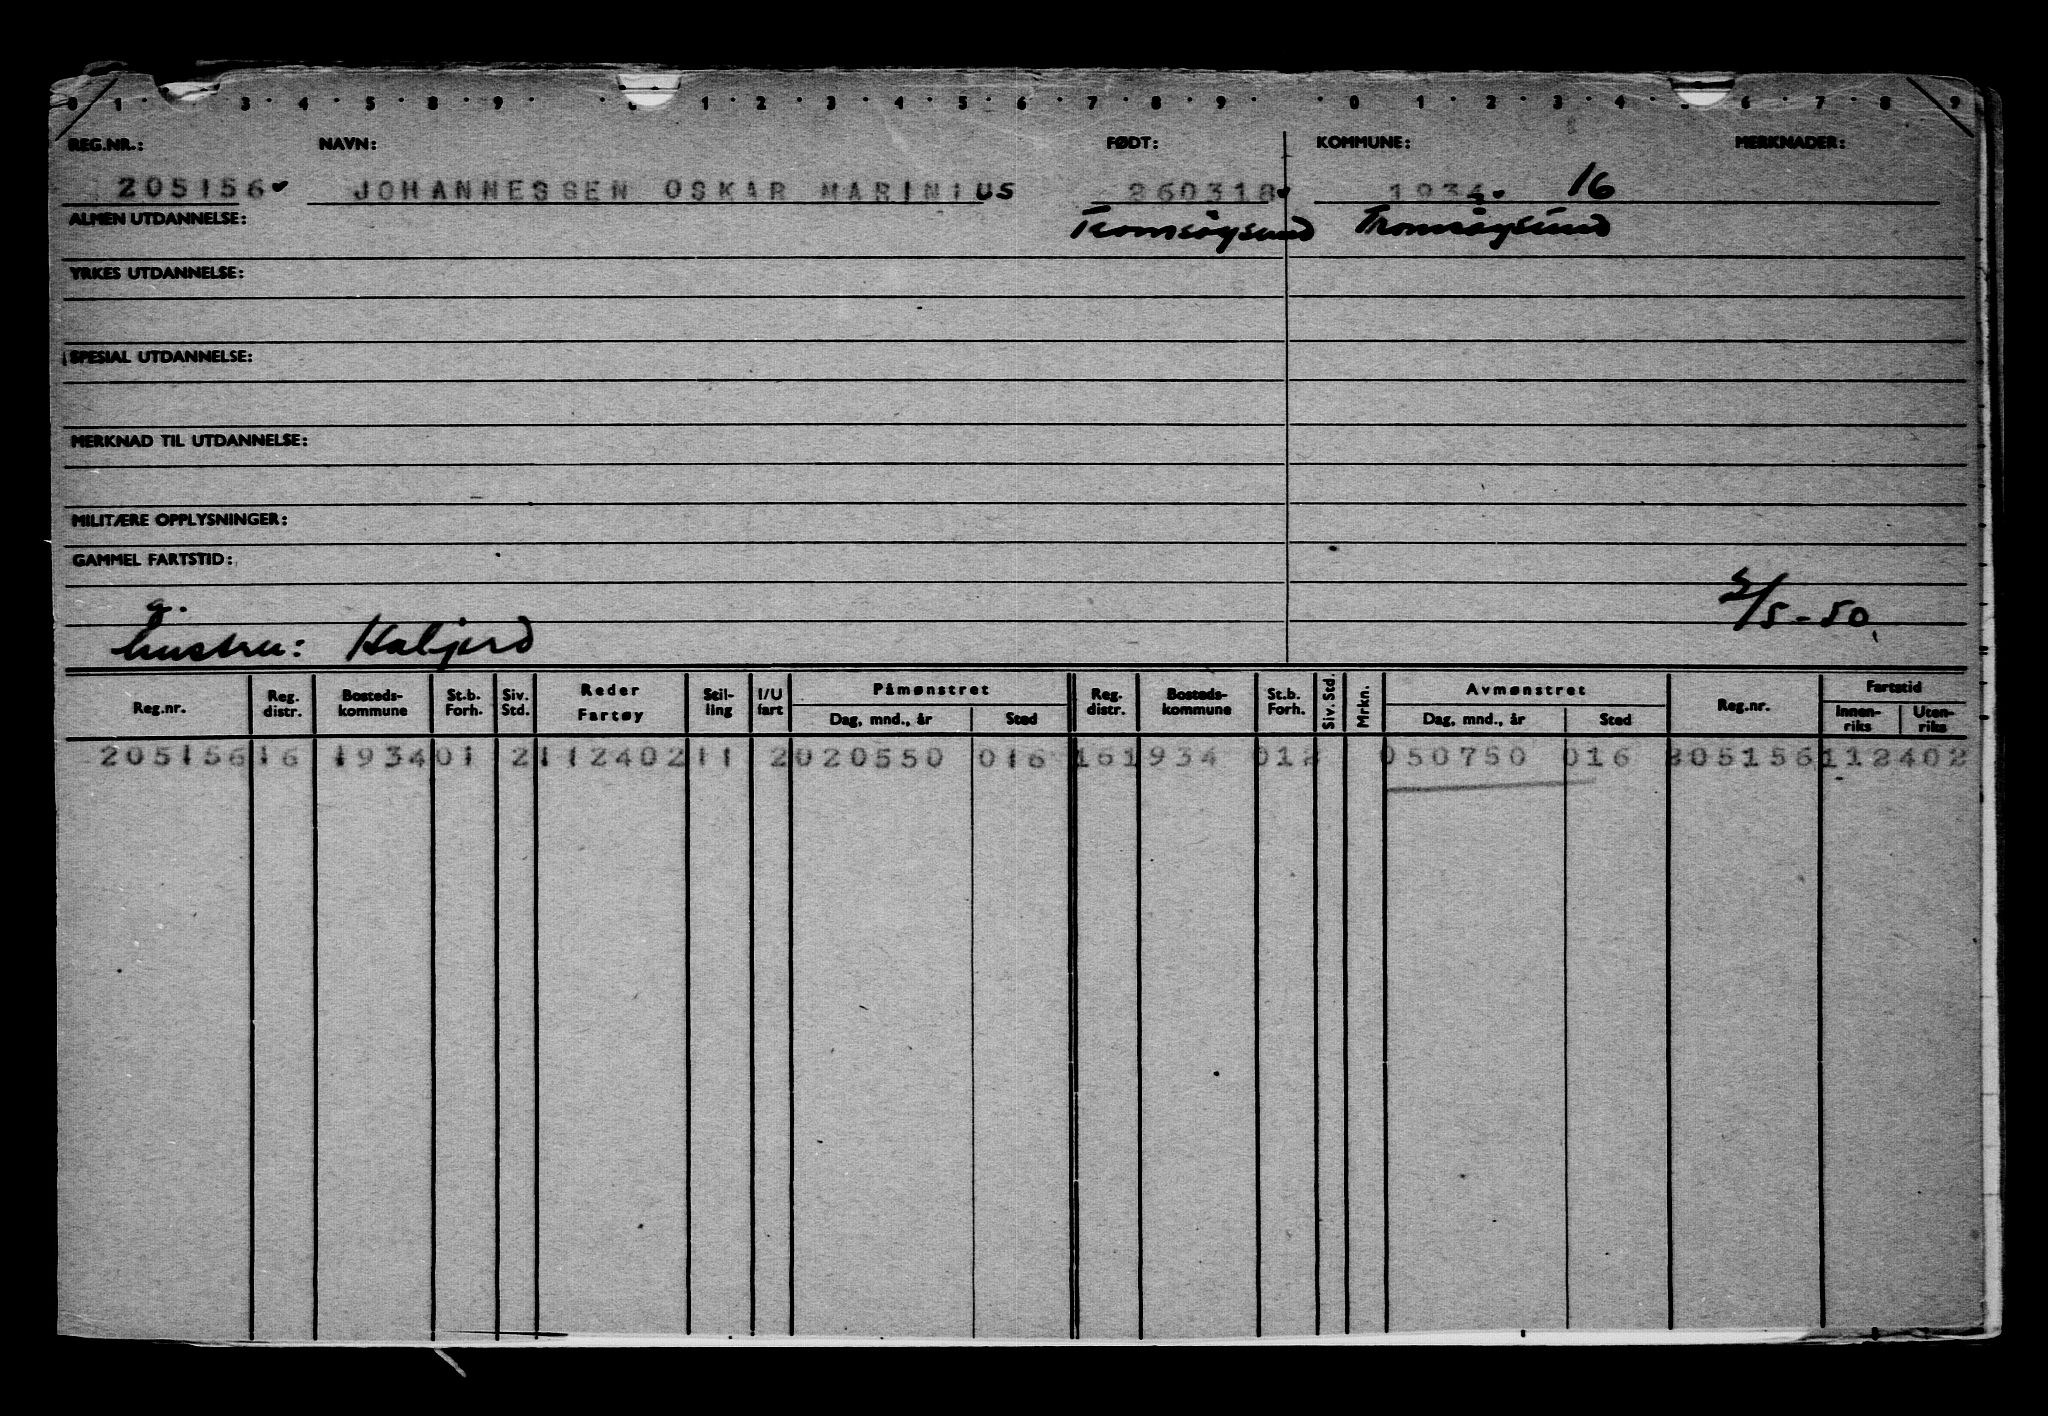 0 1 · 3 · 4 · 5 · 8 · 9 · · 1 · 2 · 3 · 4 · 5 · 6 · 7 · 8 · 9 · · 0 1 · 2 · 3 · 4 · 6 · 7 · 8 · 9
REG.NR.: NAVN: FØDT: KOMMUNE: MERKNADER:
205156 JOHANNESSEN OSKAR MARINIUS 260318 1934. 16
ALMEN UTDANNELSE: Tromsøysund Tromsøysund
YRKES UTDANNELSE:
SPESIAL UTDANNELSE:
MERKNAD TIL UTDANNELSE:
MILITÆRE OPPLYSNINGER:
GAMMEL FARTSTID:
g. 2/5-50
hustru: Halfjerd
Reg.nr. Reg. distr. Bosteds-kommune St.b. Forh. Siv. Std. Reder Fartøy Stil-ling I/U fart Påmønstret Dag, mnd., år Sted Reg. distr. Bosteds-kommune St.b. Forh. Siv. Std. Mrkn. Avmønstret Dag, mnd., år Sted Reg.nr. Fartstid Innen-riks Uten-riks
205156 16 1934 01 2 112402 11 2 020550 016 16 1934 012 050750 016 205156 112402